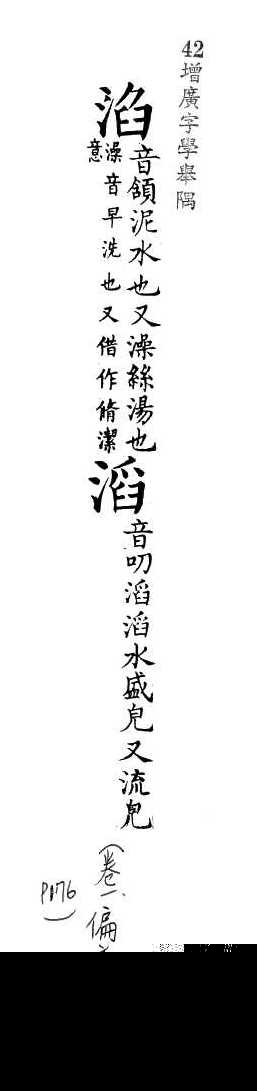 42 增廣字學舉隅
淊 音頷泥水也又澡絲湯也
澡音早洗也又借作脩潔
意
滔 音叨滔滔水盛皃又流皃
（卷一、偏
P176）